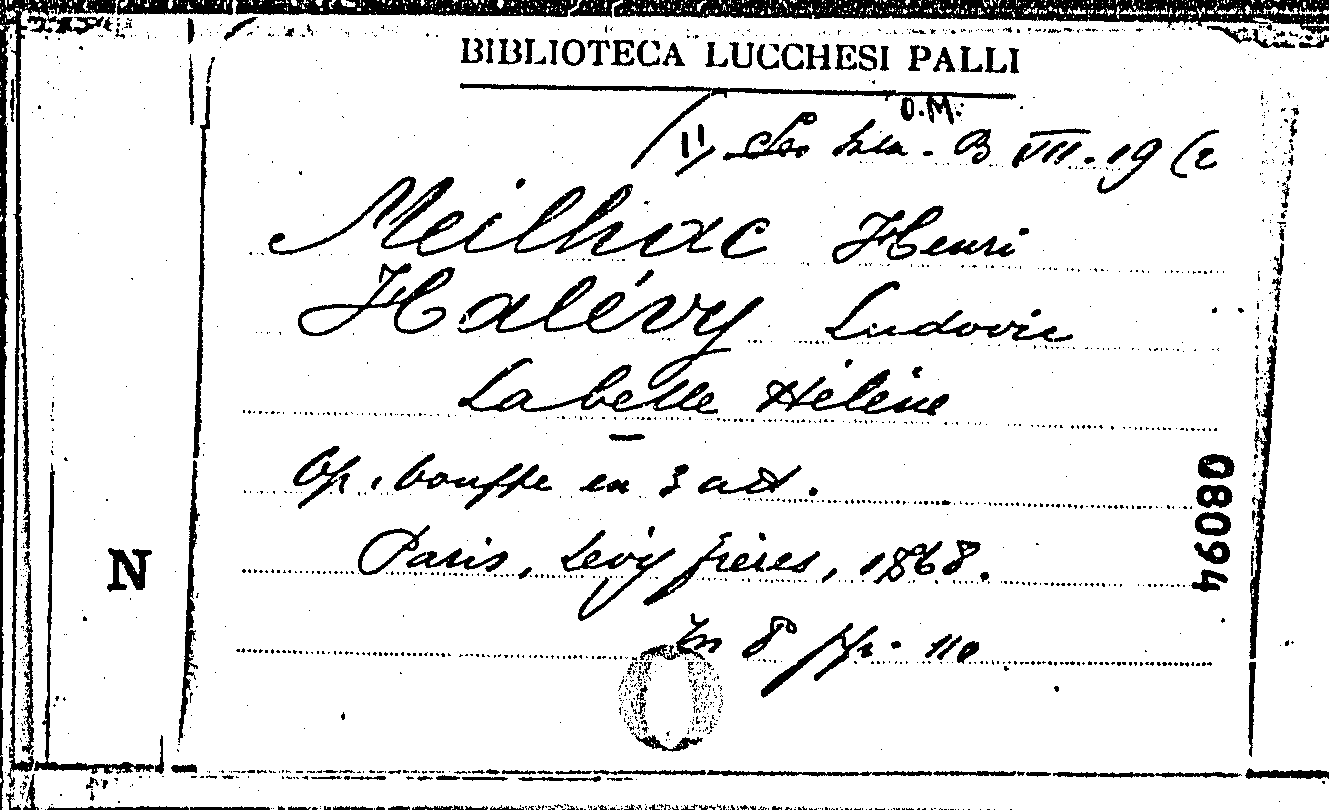 BIBLIOTECA LUCCHESI PALLI
O.M.
B VII. 19 (2
Meilhac Henri
Halévy Ludovic
La belle Hélène
Op. bouffe en 3 act.
Paris, Lévy frères, 1868.
In 8° pp. 110
N
08094